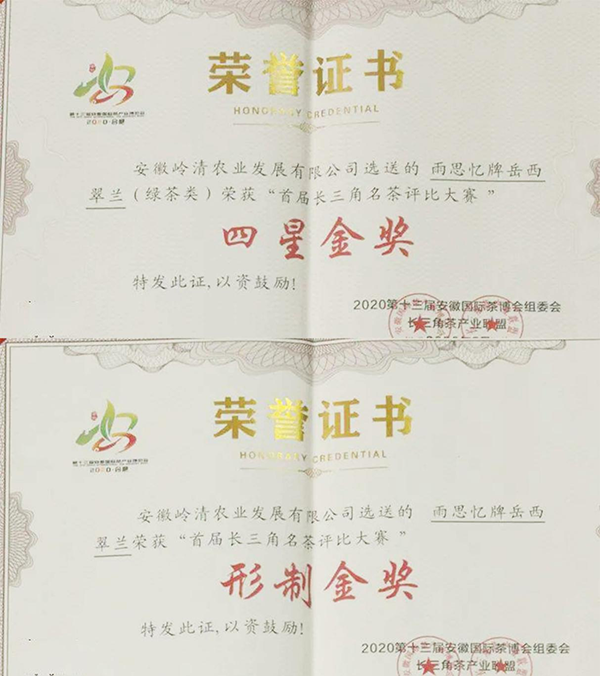 荣誉证书
HONORARY CREDENTIAL
第十三届安徽国际茶产业博览会
2020·合肥
安徽岭清农业发展有限公司选送的 雨思忆牌岳西
翠兰（绿茶类）荣获“首届长三角名茶评比大赛”
四星金奖
特发此证,以资鼓励!
2020第十三届安徽国际茶博会组委会
长三角茶产业联盟
荣誉证书
HONORARY CREDENTIAL
2020·合肥
安徽岭清农业发展有限公司选送的 雨思忆牌岳西
翠兰荣获“首届长三角名茶评比大赛”
形制金奖
特发此证,以资鼓励!
2020第十三届安徽国际茶博会组委会
长三角茶产业联盟